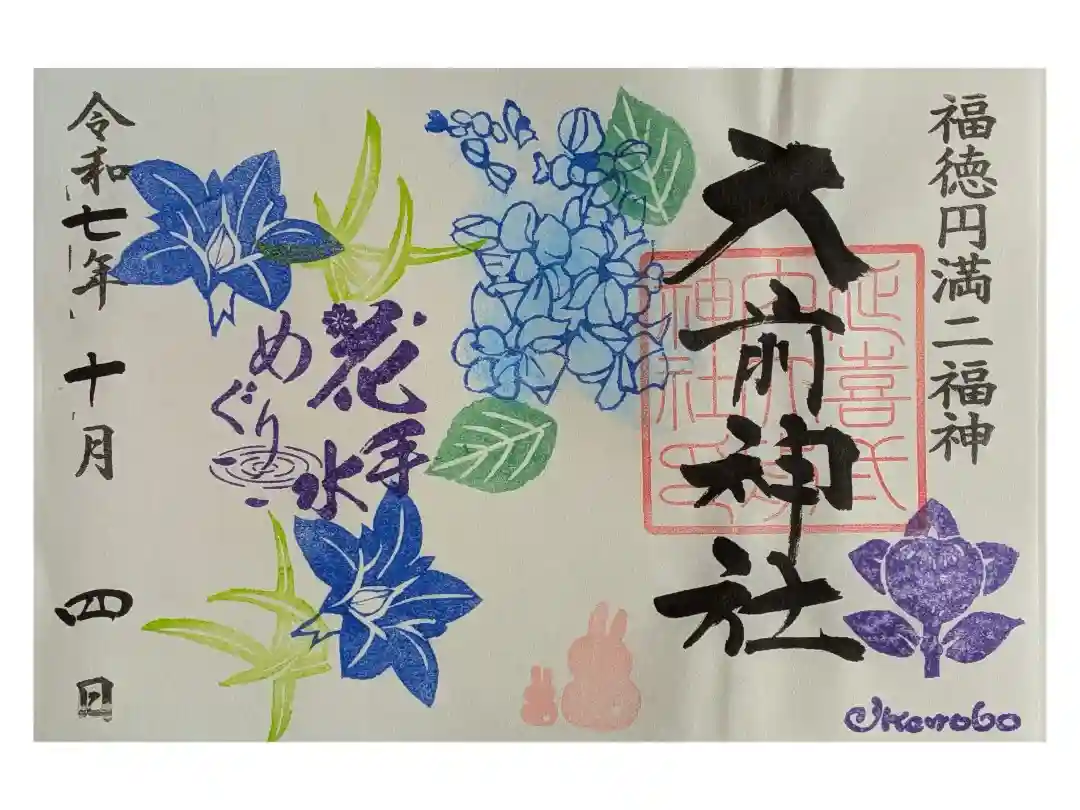 福徳円満二福神
大前神社
延喜式内大前神社
花手水
めぐり
令和七年十月四日